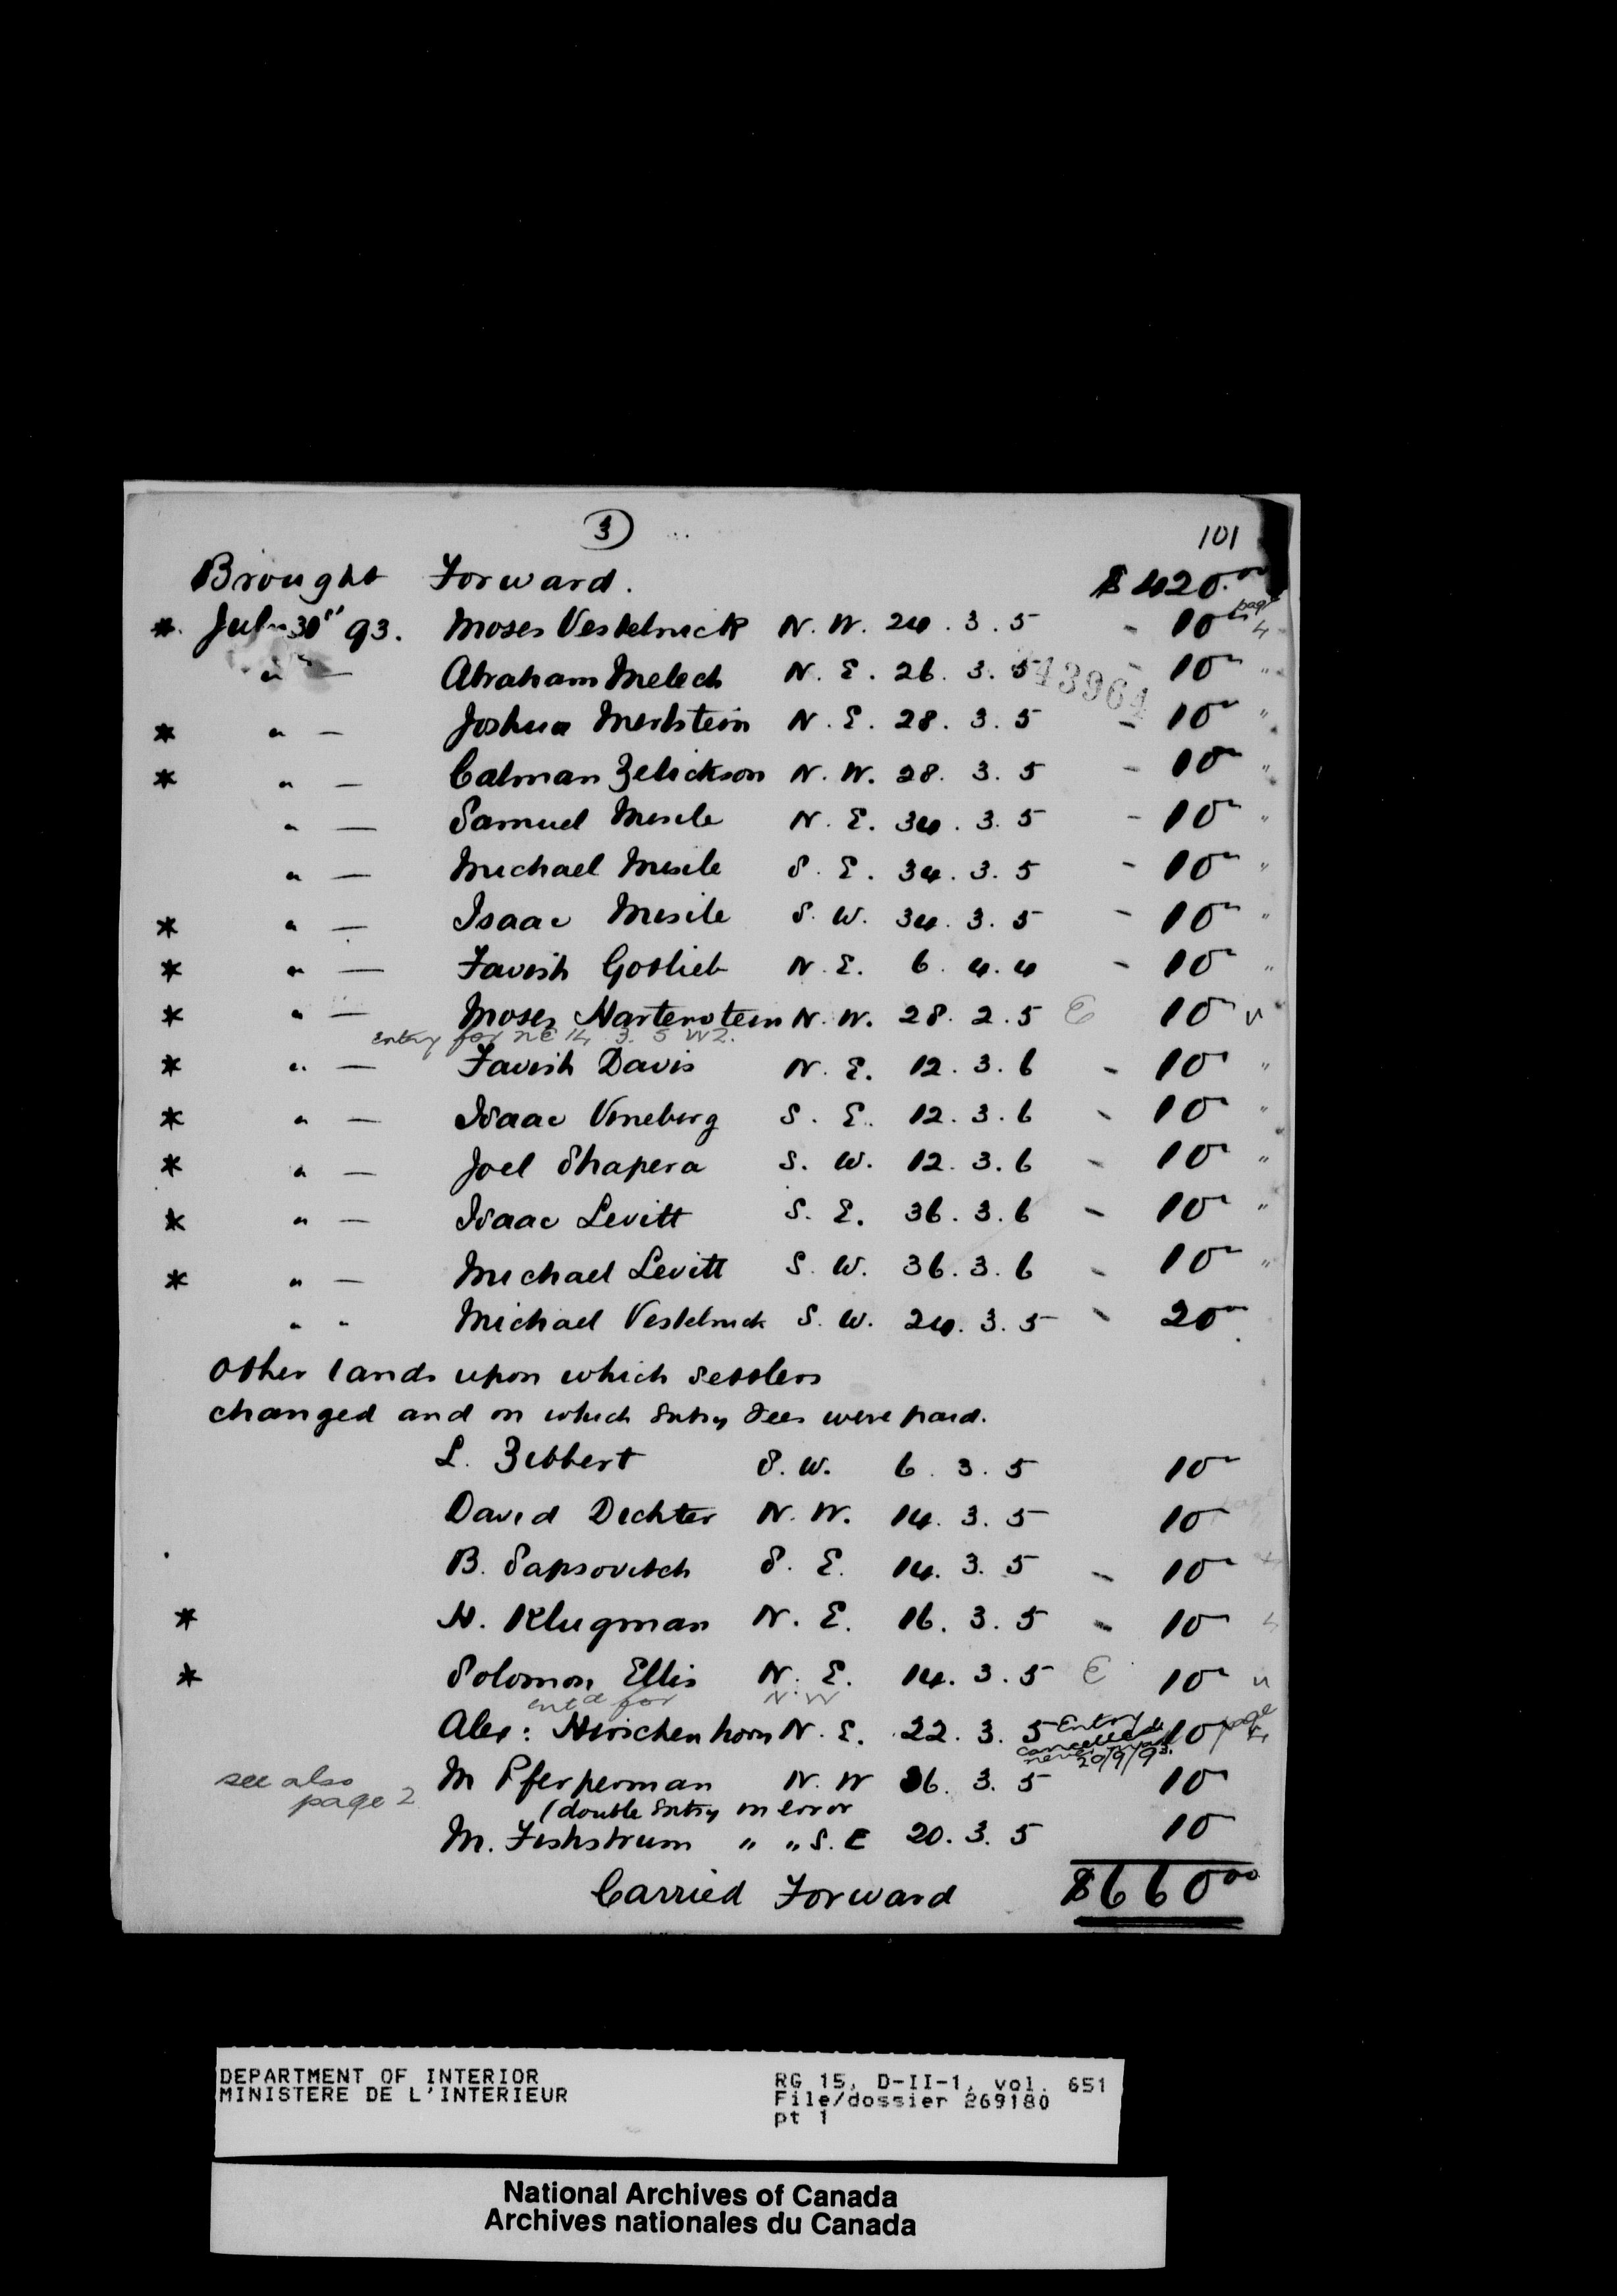 3
101
Brought Forward. $420.00
* July 30th 93. Moses Vestelnick N. W. 24. 3. 5 - 10 00 page 4
" — Abraham Melech N. E. 26. 3. 5 - 10 00 "
43964
* " — Joshua Merkstein N. E. 28. 3. 5 - 10 00 "
* " — Calman Zelickson N. W. 28. 3. 5 - 10 00 "
" — Samuel Mesile N. E. 34. 3. 5 - 10 00 "
" — Michael Mesile S. E. 34. 3. 5 - 10 00 "
* " — Isaac Mesile S. W. 34. 3. 5 - 10 00 "
* " — Favish Gotlieb N. E. 6. 4. 4 - 10 00 "
* " — Moses Hartenstein N. W. 28. 2. 5 E 10 00 "
entry for NE 14 3. 5 W2.
* " — Favish Davis N. E. 12. 3. 6 - 10 00 "
* " — Isaac Vineberg S. E. 12. 3. 6 - 10 00 "
* " — Joel Shapera S. W. 12. 3. 6 - 10 00 "
* " — Isaac Levitt S. E. 36. 3. 6 - 10 00 "
* " — Michael Levitt S. W. 36. 3. 6 - 10 00 "
" " Michael Vestelnick S. W. 24. 3. 5 - 20 00
Other lands upon which settlers
changed and on which Entry Fees were paid.
L. Zibbert S. W. 6. 3. 5 10 00
David Dechter N. W. 14. 3. 5 10
B. Sapsovitch S. E. 14. 3. 5 - 10 00
* H. Klugman N. E. 16. 3. 5 - 10 4
* Solomon Ellis N. E. 14. 3. 5 E 10 00 "
entd for N. W
Alex: Hirschenhorn N. E. 22. 3. 5 Entry cancelled 20/9/93. 10 page
see also page 2 M Pferperman N. W 36. 3. 5 10
(double Entry in error
M. Fishstrum " " S. E 20. 3. 5 10
Carried Forward $660 00
DEPARTMENT OF INTERIOR
MINISTERE DE L'INTERIEUR
RG 15, D-II-1, vol. 651
File/dossier 269180
pt 1
National Archives of Canada
Archives nationales du Canada